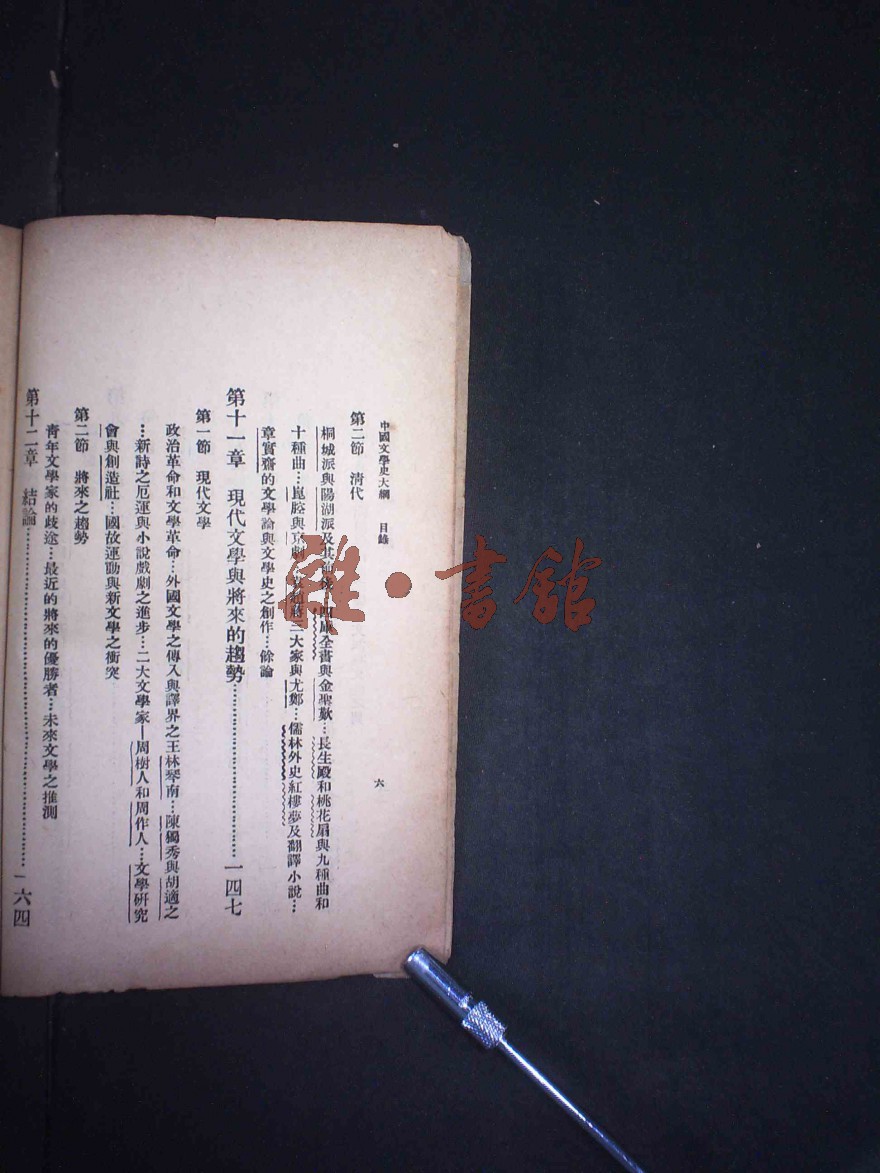 中國文學史大綱　目錄　六
第二節　淸代
桐城派與陽湖派及其 四庫全書與金聖歎…長生殿和桃花扇與九種曲和
十種曲…崑腔與京劇 三大家與尤鄭…儒林外史紅樓夢及翻譯小說…
章實齋的文學論與文學史之創作…餘論
第十一章　現代文學與將來的趨勢……一四七
第一節　現代文學
政治革命和文學革命…外國文學之傳入與譯界之王林琴南…陳獨秀與胡適之
…新詩之厄運與小說戲劇之進步…二大文學家—周樹人和周作人…文學研究
會與創造社…國故運動與新文學之衝突
第二節　將來之趨勢
靑年文學家的歧途…最近的將來的優勝者…未來文學之推測
第十二章　結論……一六四
雜·書館